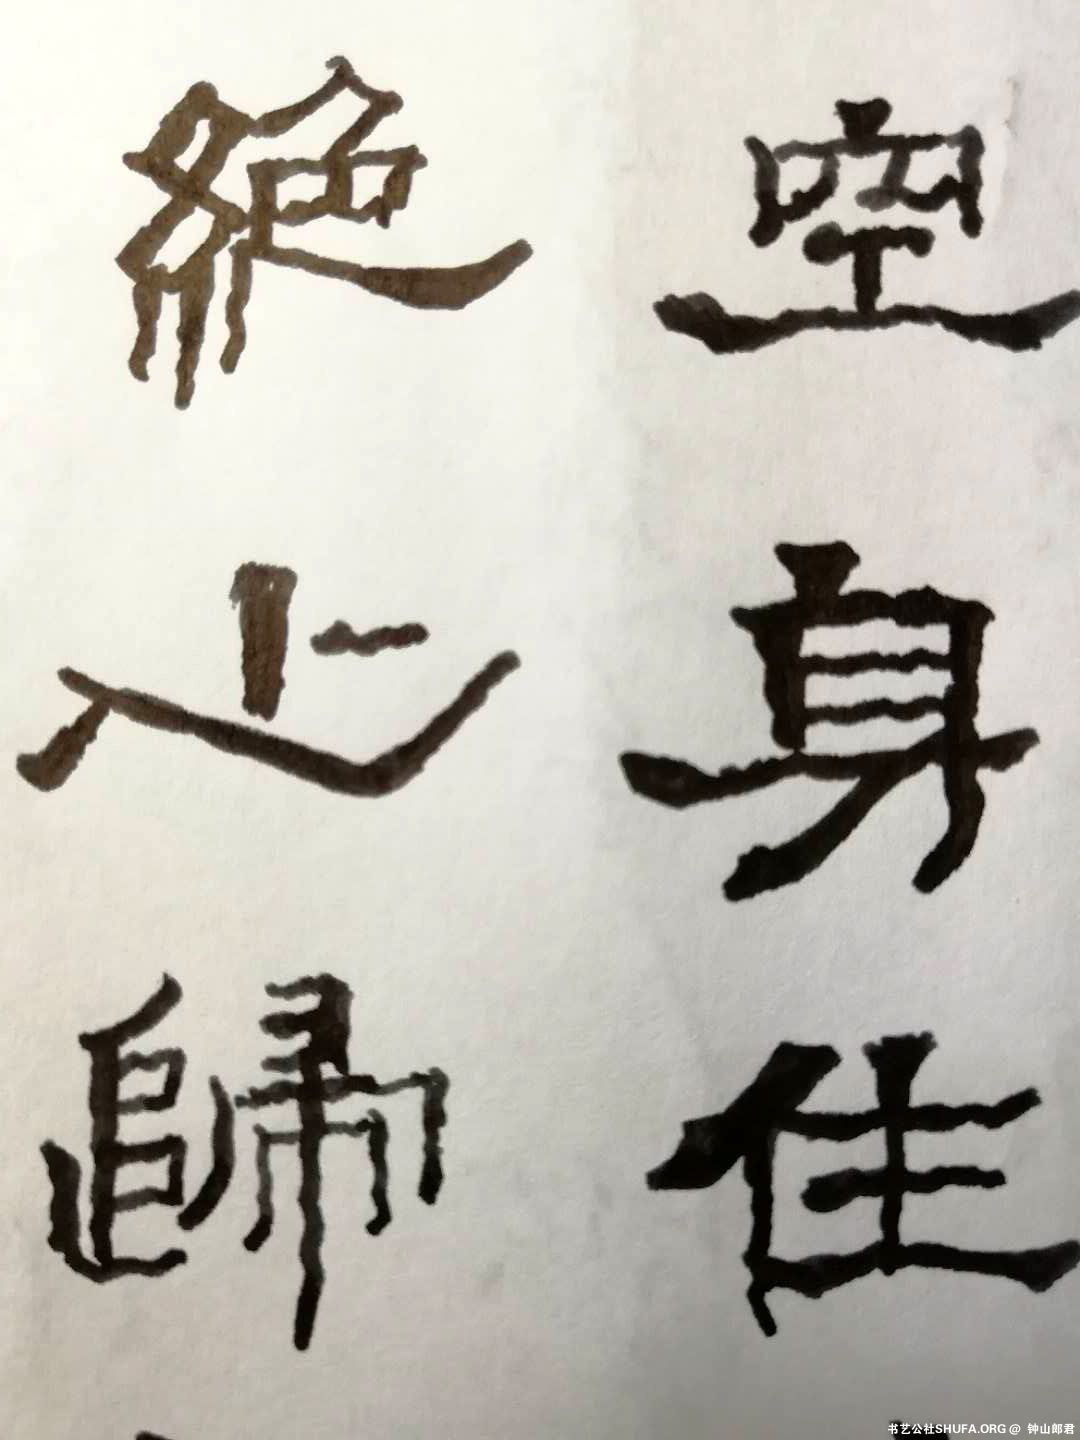 空身住
絶心歸
书艺公社SHUFA.ORG @ 钟山郎君